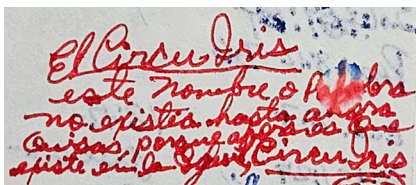 El Circu Iris
este nombre o Palabra
no existea hasta ahora
Quisas porque ahora es que
existe en la CircuIris